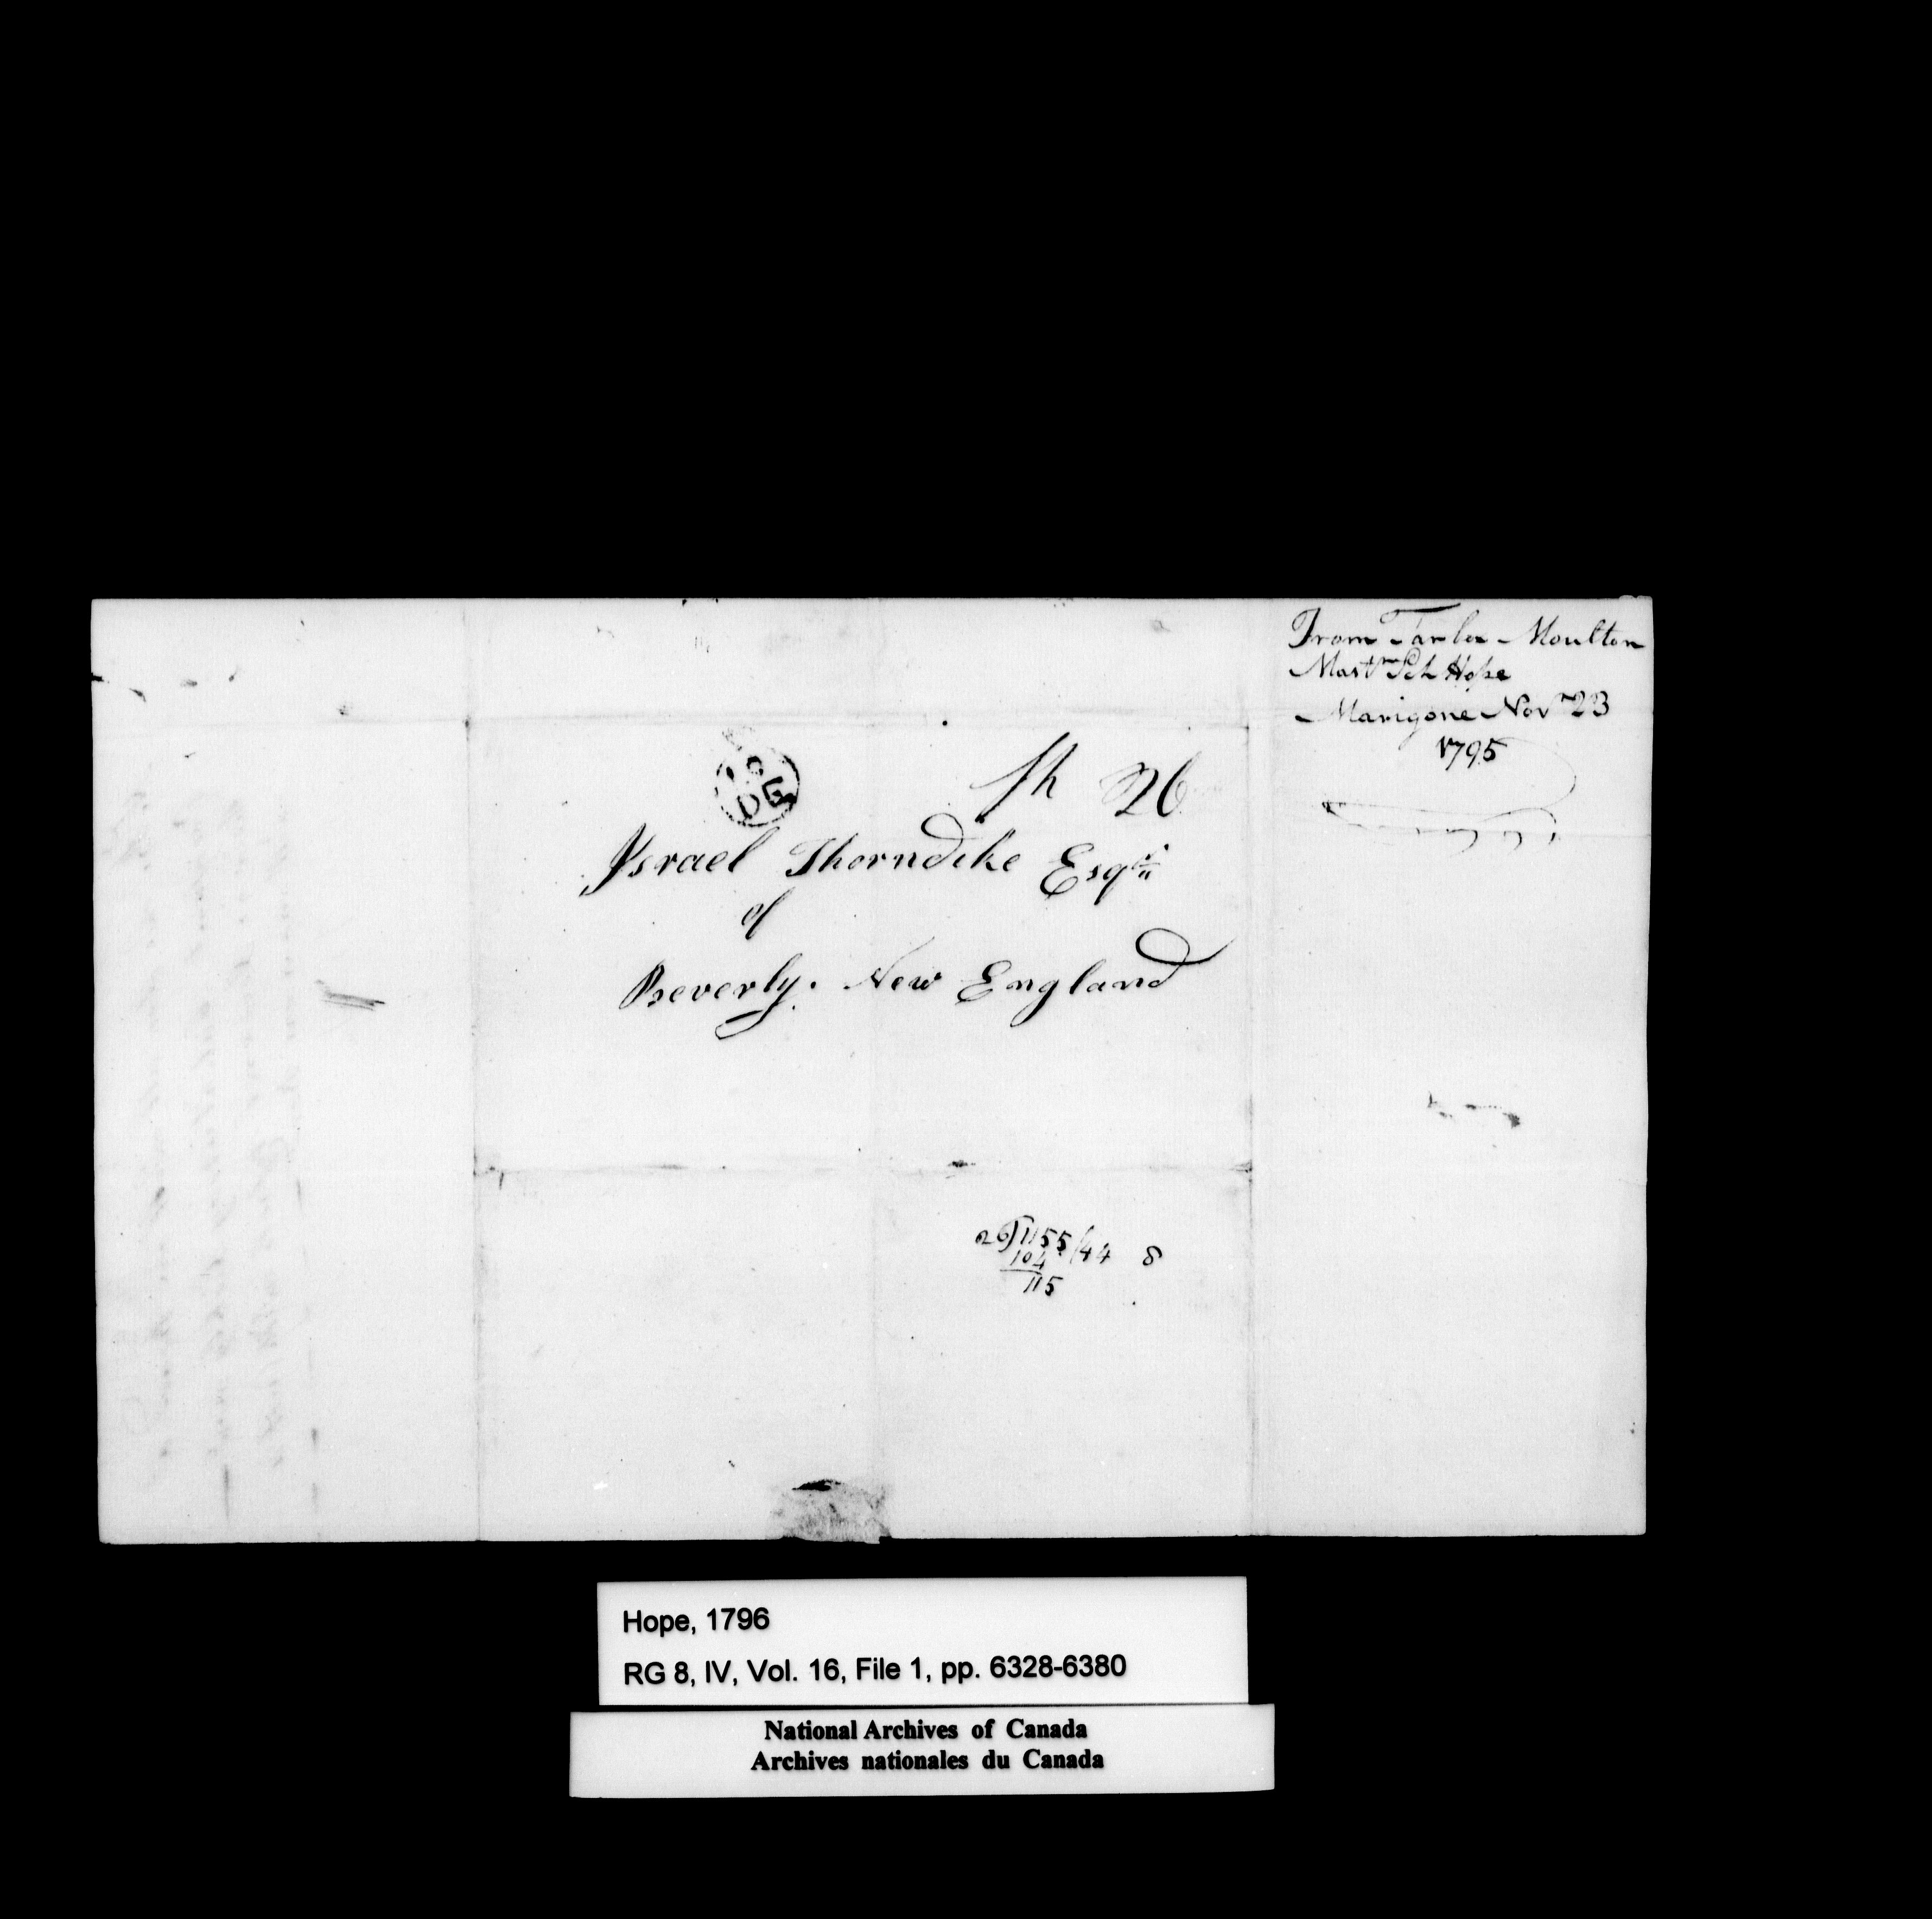 From Tarbox Moulton
Mastr Sch Hope
Marigone Novr 23
1795
19
DE
Sh 26
Israel Thorndike Esqr
of
Beverly. New England
26)1155(44 8
104
115
Hope, 1796
RG 8, IV, Vol. 16, File 1, pp. 6328-6380
National Archives of Canada
Archives nationales du Canada